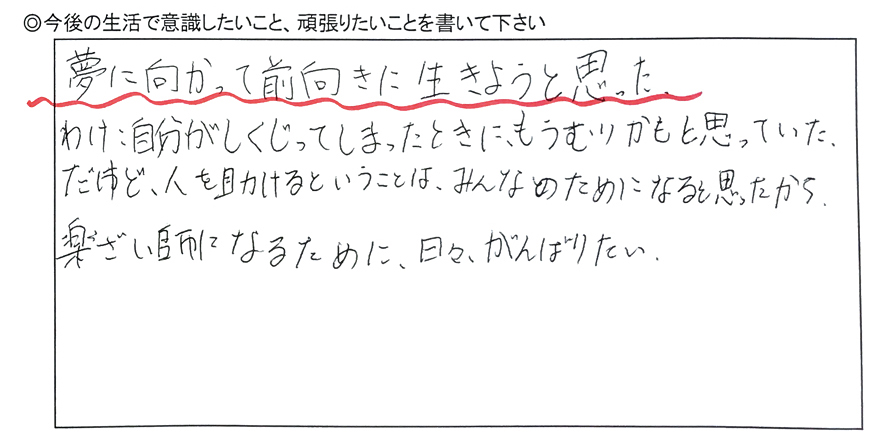 ◎今後の生活で意識したいこと、頑張りたいことを書いて下さい
夢に向かって前向きに生きようと思った.
わけ:自分がしくじってしまったときに、もうむりかもと思っていた.
だけど、人を助けるということは、みんなのためになると思ったから.
薬ざい師になるために、日々、がんばりたい.